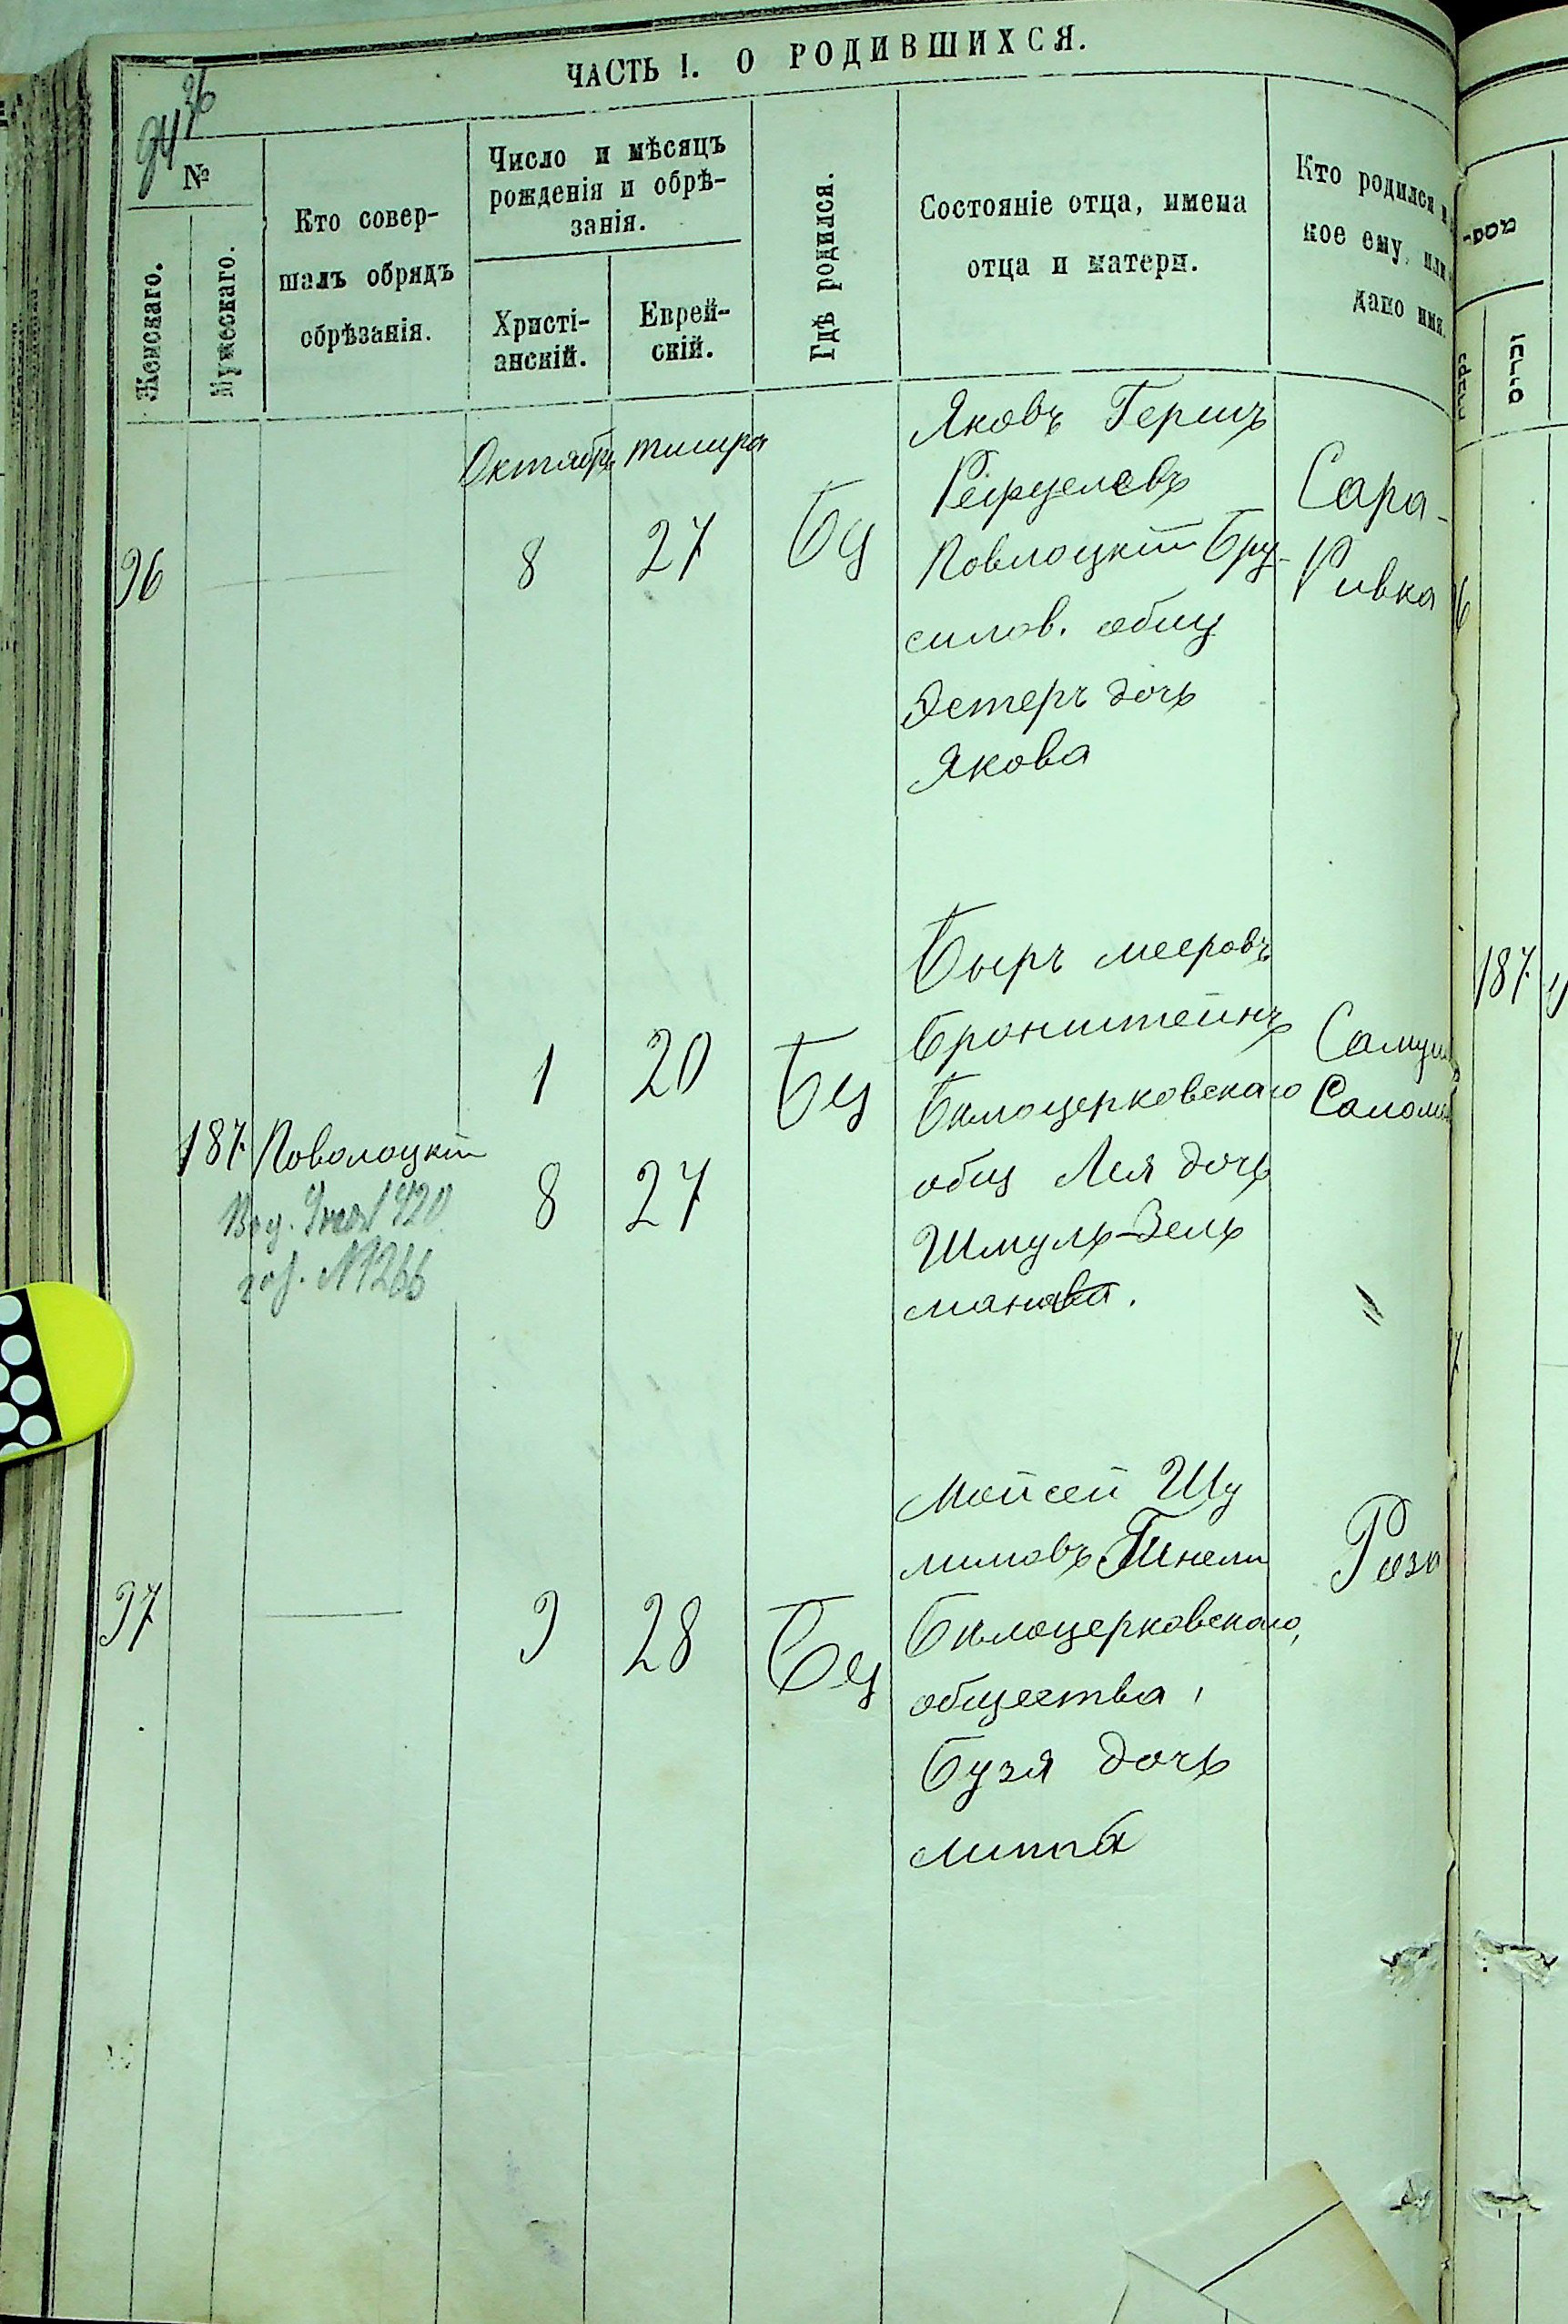 ЧАСТЬ I. О РОДИВШИХСЯ.
94 96
№
Женскаго.
Мужескаго.
Кто совер-
шалъ обрядъ
обрѣзанія.
Число и мѣсяцъ
рожденія и обрѣ-
занія.
Христі-
анскій.
Еврей-
скій.
Гдѣ родился.
Состояніе отца, имена
отца и матери.
Кто родился и
кое ему, или
дано имя.
Октябрь тишра
96
8
27
Бц
Яковъ Гершъ
Повлоцкій Бру-
силов. общ
Эстеръ дочь
Якова
Сара-
Ривка
187
Поволоцкій
№ 1266
1 20
8 27
Бц
Быръ мееровъ
Бронштейнъ
Бѣлоцерковскаго
общ Лея дочь
Шмуль-Зель
манова.
Самуи
Саломо
97
9
28
Бц
Мойсей Шу
лимовъ
Бѣлоцерковскаго,
общества,
Бузя дочь
липпа
Роза
מספר
זכרים
187